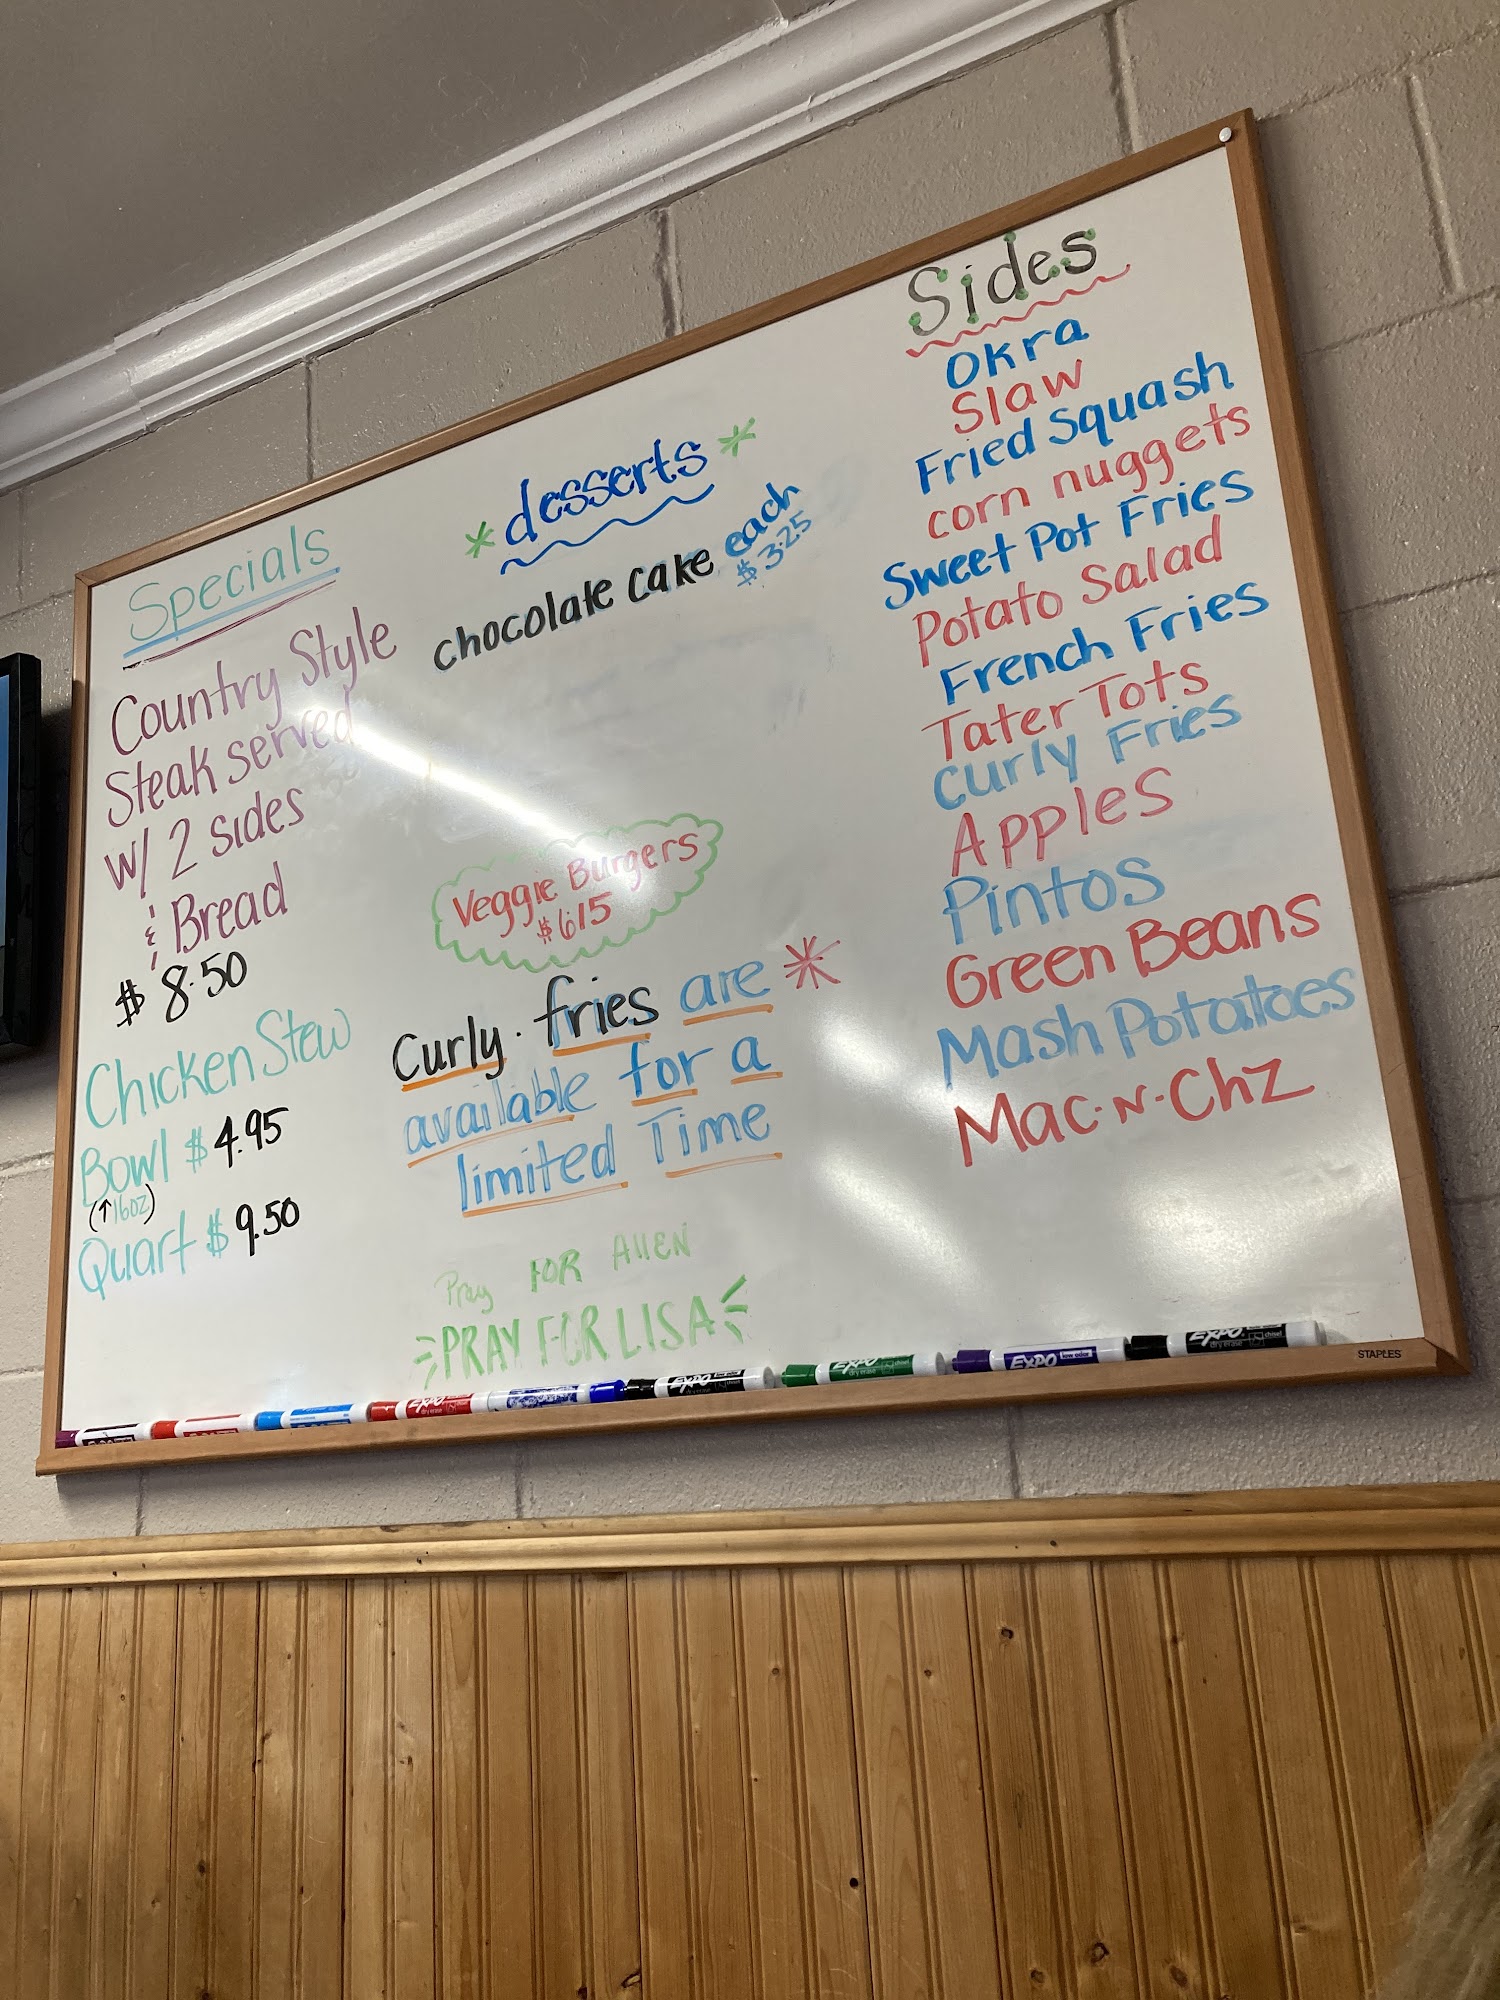 Specials
Country Style
Steak served
w/ 2 sides
& Bread
$ 8.50
Chicken Stew
Bowl $ 4.95
(↑16oz)
Quart $ 9.50
* desserts *
chocolate cake each
$3.25
Veggie Burgers
$6.15
Curly fries are *
available for a
limited Time
Pray FOR AllEN
PRAY FOR LISA
Sides
Okra
Slaw
Fried Squash
corn nuggets
Sweet Pot Fries
Potato Salad
French Fries
Tater Tots
Curly Fries
Apples
Pintos
Green Beans
Mash Potatoes
Mac-N-Chz
EXPO
EXPO
EXPO
EXPO
EXPO
STAPLES